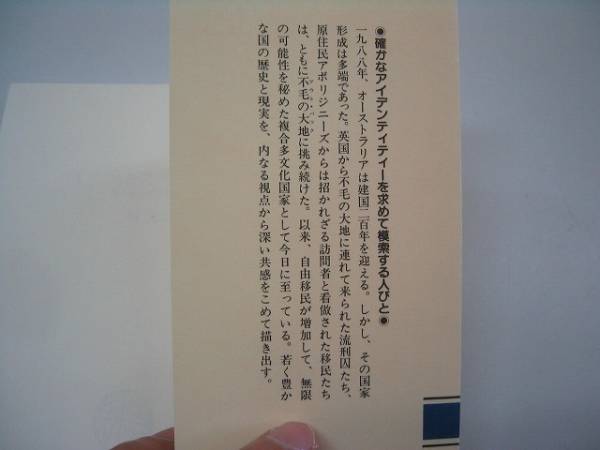 ●確かなアイデンティティーを求めて模索する人びと●
一九八八年、オーストラリアは建国二百年を迎える。しかし、その国家
形成は多端であった。英国から不毛の大地に連れて来られた流刑囚たち、
原住民アボリジニーズからは招かれざる訪問者と看做された移民たち
は、ともに不毛の大地に挑み続けた。以来、自由移民が増加して、無限
の可能性を秘めた複合多文化国家として今日に至っている。若く豊か
な国の歴史と現実を、内なる視点から深い共感をこめて描き出す。